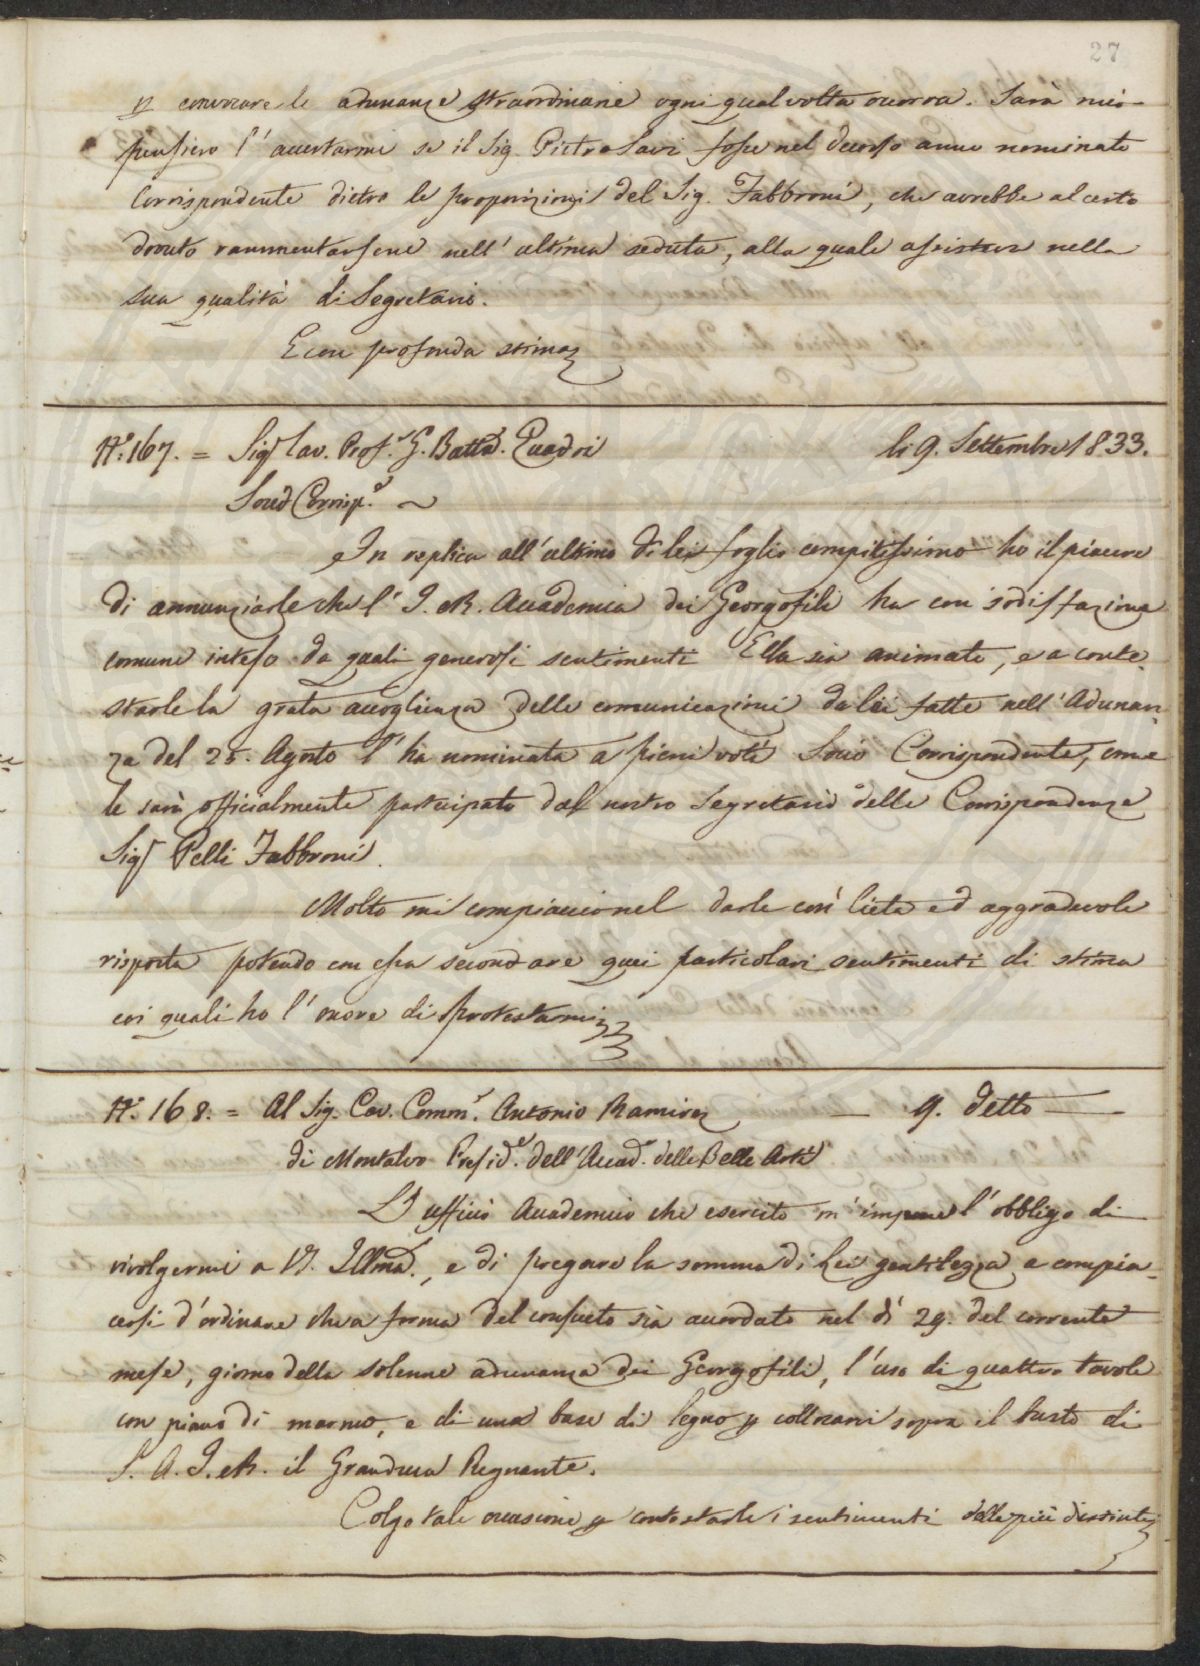 27
p convocare le adunanze straordinarie ogni qual volta occorra. Sarà mio
pensiero l'accertarmi se il Sig. Pietro Savi fosse nel decorso anno nominato
Corrispondente dietro le proposizioni del Sig. Fabbroni, che avrebbe al certo
dovuto rammentarsene nell'ultima seduta, alla quale assisteva nella
sua qualità di Segretario.
E con profonda stima
N.° 167. = Sigr Cav. Prof.r G. Batta. Quadri li 9. Settembre 1833.
Socio Corrisp.e
In replica all'ultimo di lei foglio compitissimo ho il piacere
di annunziarle che l'I. e R. Accademia dei Georgofili ha con sodisfazione
comune inteso da quali generosi sentimenti Ella sia animato, e a conte-
starle la grata accoglienza delle comunicazioni da lei fatte nell'Adunan-
za del 25. Agosto l'ha nominata a pieni voti Socio Corrispondente, come
le sarà officialmente partecipato dal nostro Segretario delle Corrispondenze
Sigr Pelli Fabbroni.
Molto mi compiaccio nel darle così lieta ed aggradevole
risposta potendo con essa secondare quei particolari sentimenti di stima
coi quali ho l'onore di protestarmi
N.° 168. = Al Sig. Cav. Comm.r Antonio Ramirez — 9. detto —
di Montalvo Presid.e dell'Accad.a delle Belle Arti
L'uffizio Accademico che esercito m'impone l'obbligo di
rivolgermi a V.S. Illma., e di pregare la somma di Lei gentilezza a compia-
cersi d'ordinare che a forma del consueto sia accordato nel dì 29. del corrente
mese, giorno della solenne adunanza dei Georgofili, l'uso di quattro tavole
con piano di marmo, e di una base di legno p collocarvi sopra il busto di
S. A. I. e R. il Granduca Regnante.
Colgo tale occasione p contestarle i sentimenti della più distinta